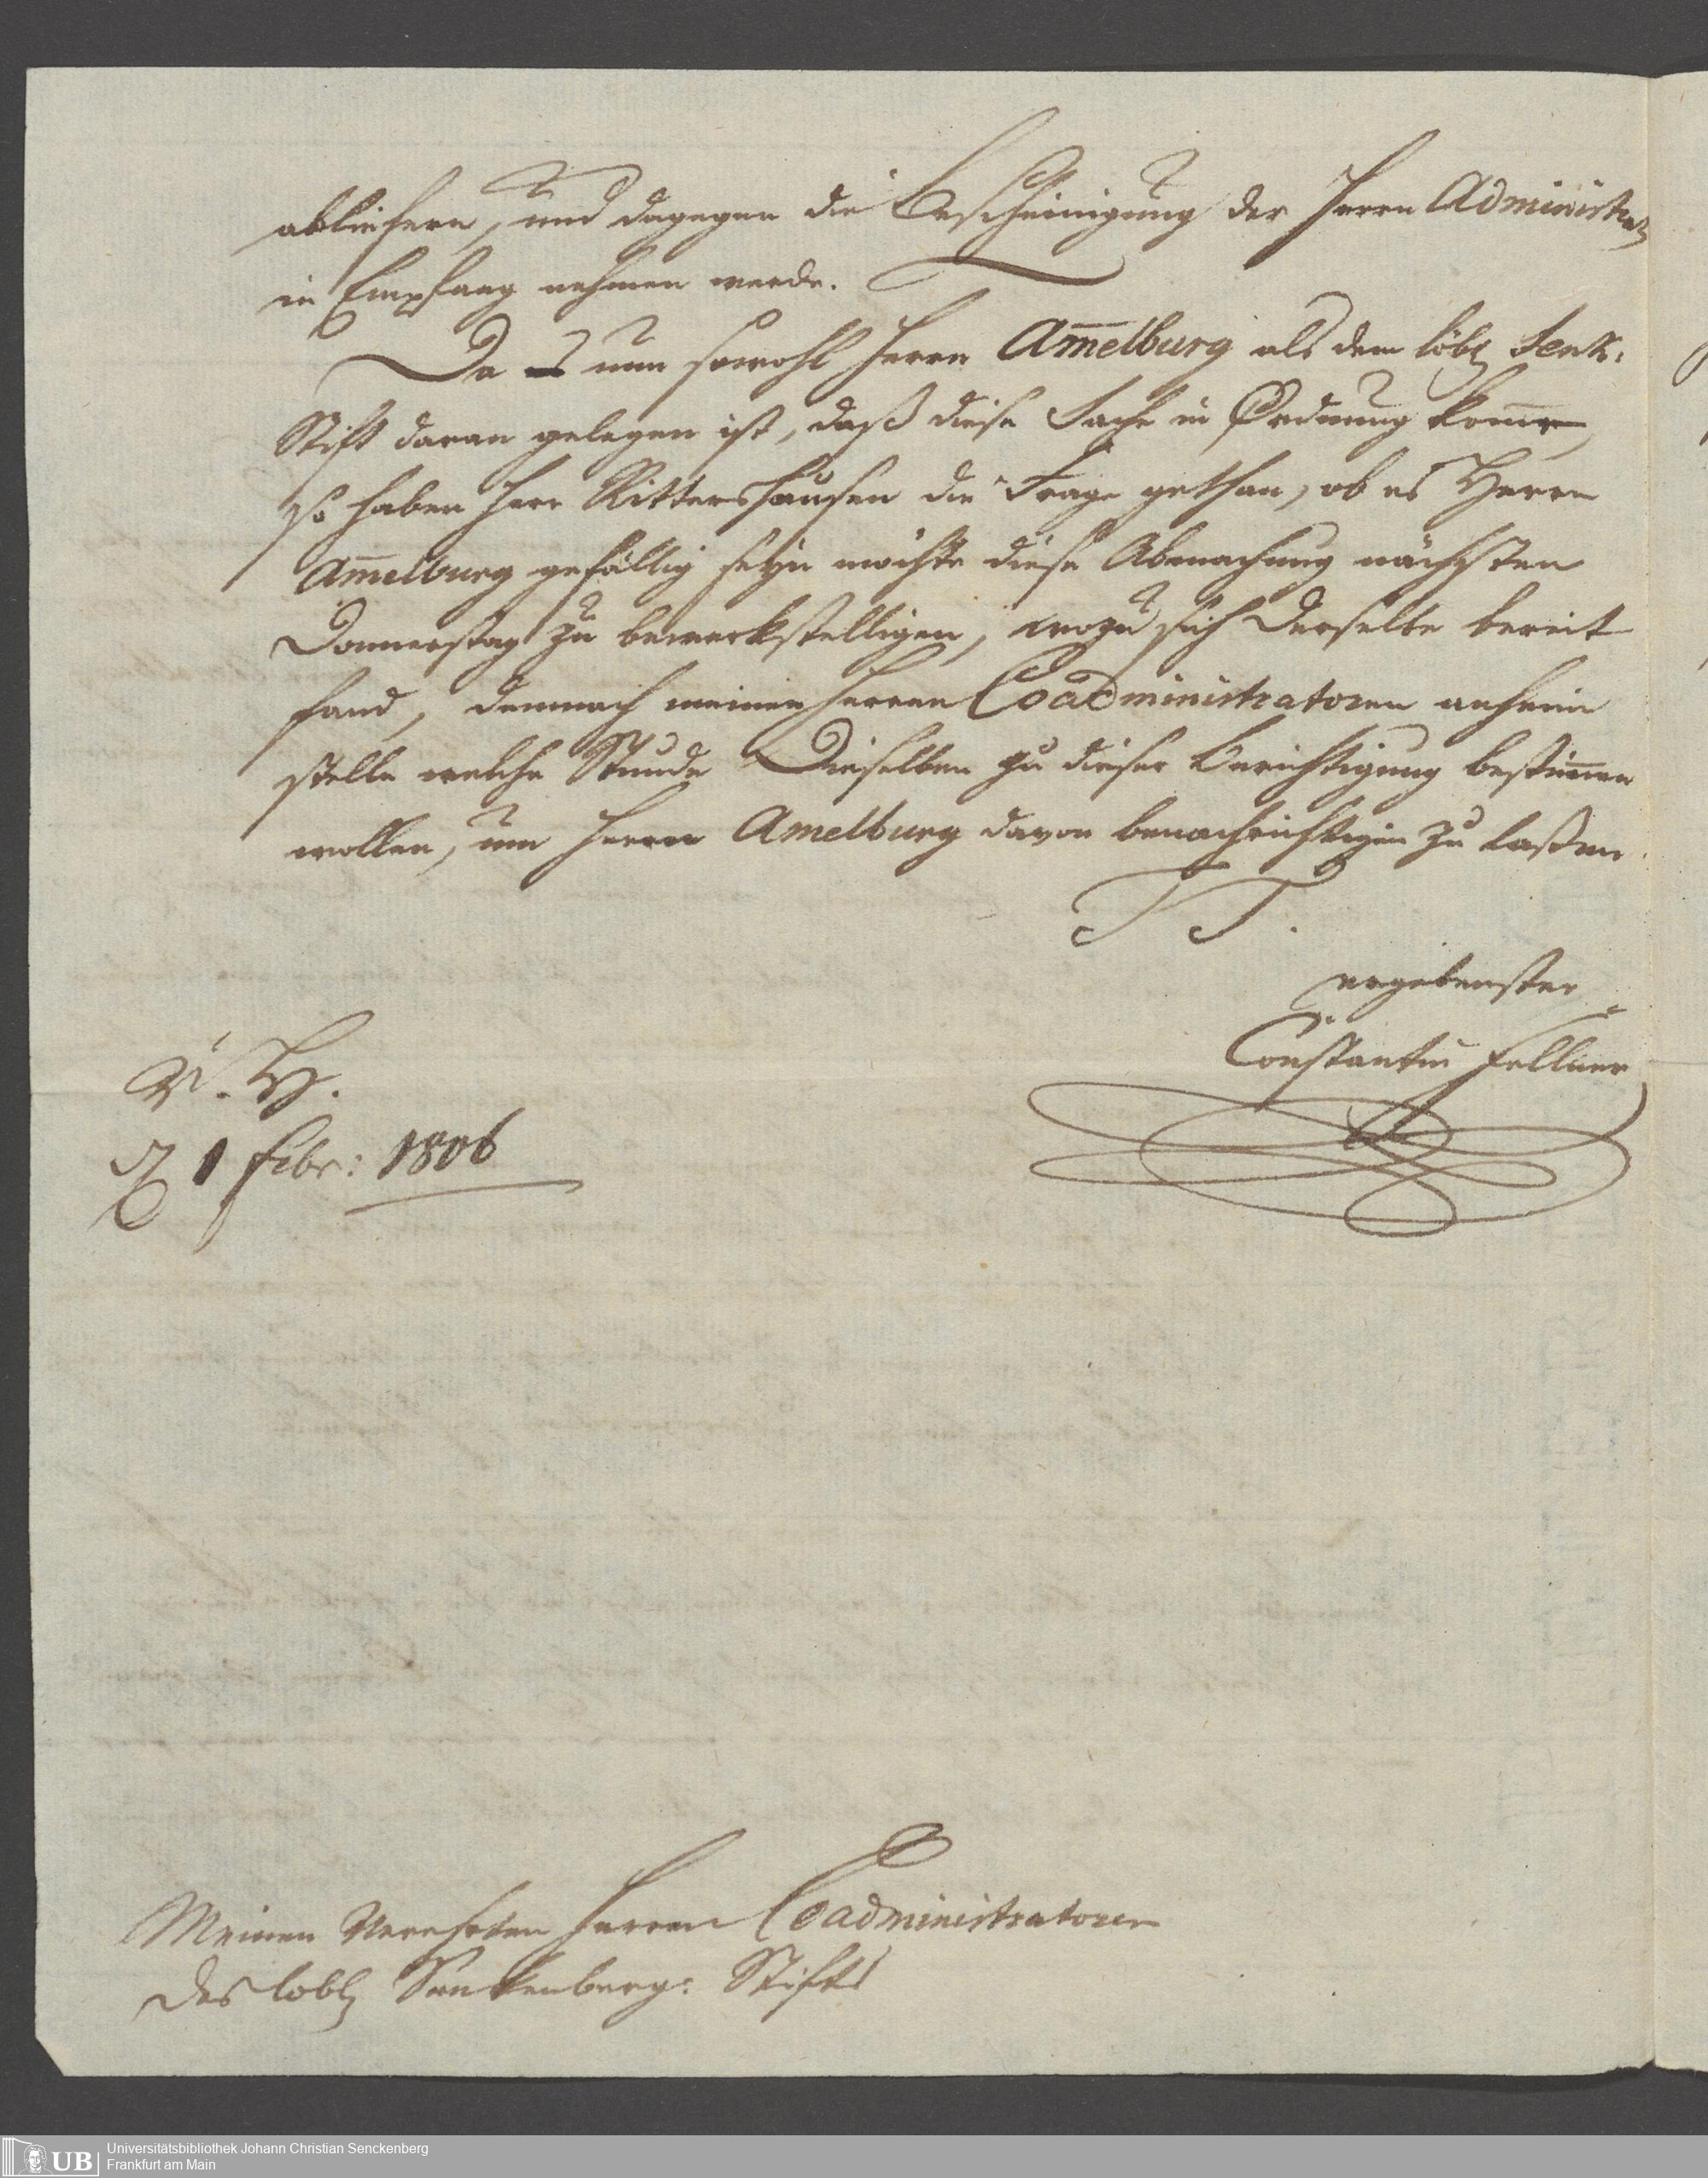 abliefern, und dagegen die Bescheinigung der Herrn Administrat
in Empfang nehmen werde.
Da nun sowohl Herrn Am̅elburg als dem löbl Senk:
Stift daran gelegen ist, daß diese Sache in Ordnung kom̅e
so haben Herr Rittershausen die Frage gethan, ob es Herrn
Am̅elburg gefällig seyn möchte diese Abmachung nächsten
Donnerstag zu bewerkstelligen, wozu sich Derselbe bereit
fand, demnach meinen Herren Coadministratoren anheim
stelle welche Stunde Dieselben zu dieser Berichtigung bestim̅en
wollen, um Herrn Amelburg davon benachrichtigen zu laßen.
TT.
ergebenster
Constantin Fellner
V. H.
d 1 Febr: 1806
Meinen Verehrten Herren Coadministratoren
des löbl Senkenberg: Stifts
UB Universitätsbibliothek Johann Christian Senckenberg
Frankfurt am Main